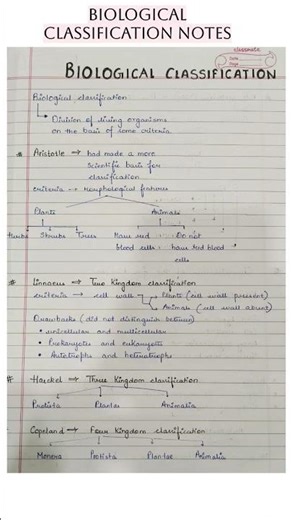 BIOLOGICAL
CLASSIFICATION NOTES
classmate
Date
Page
BIOLOGICAL CLASSIFICATION
Biological classification
Division of living organisms
on the basis of some criteria.
* Aristotle → had made a more
scientific basis for
classification
criteria → Morphological features
Plants Animals
Herbs Shrubs Trees Have red Do not
blood cells. have red blood
cells
* Linnaeus → Two Kingdom classification
criteria → cell wall Plants (cell wall present)
Animals (cell wall absent)
Drawbacks (did not distinguish between)
• unicellular and multicellular
• Prokaryotes and eukaryotes
• Autotrophs and heterotrophs
# Haeckel → Three Kingdom classification
Protista Plantae Animalia
Copeland → Four Kingdom classification
Monera Protista Plantae Animalia